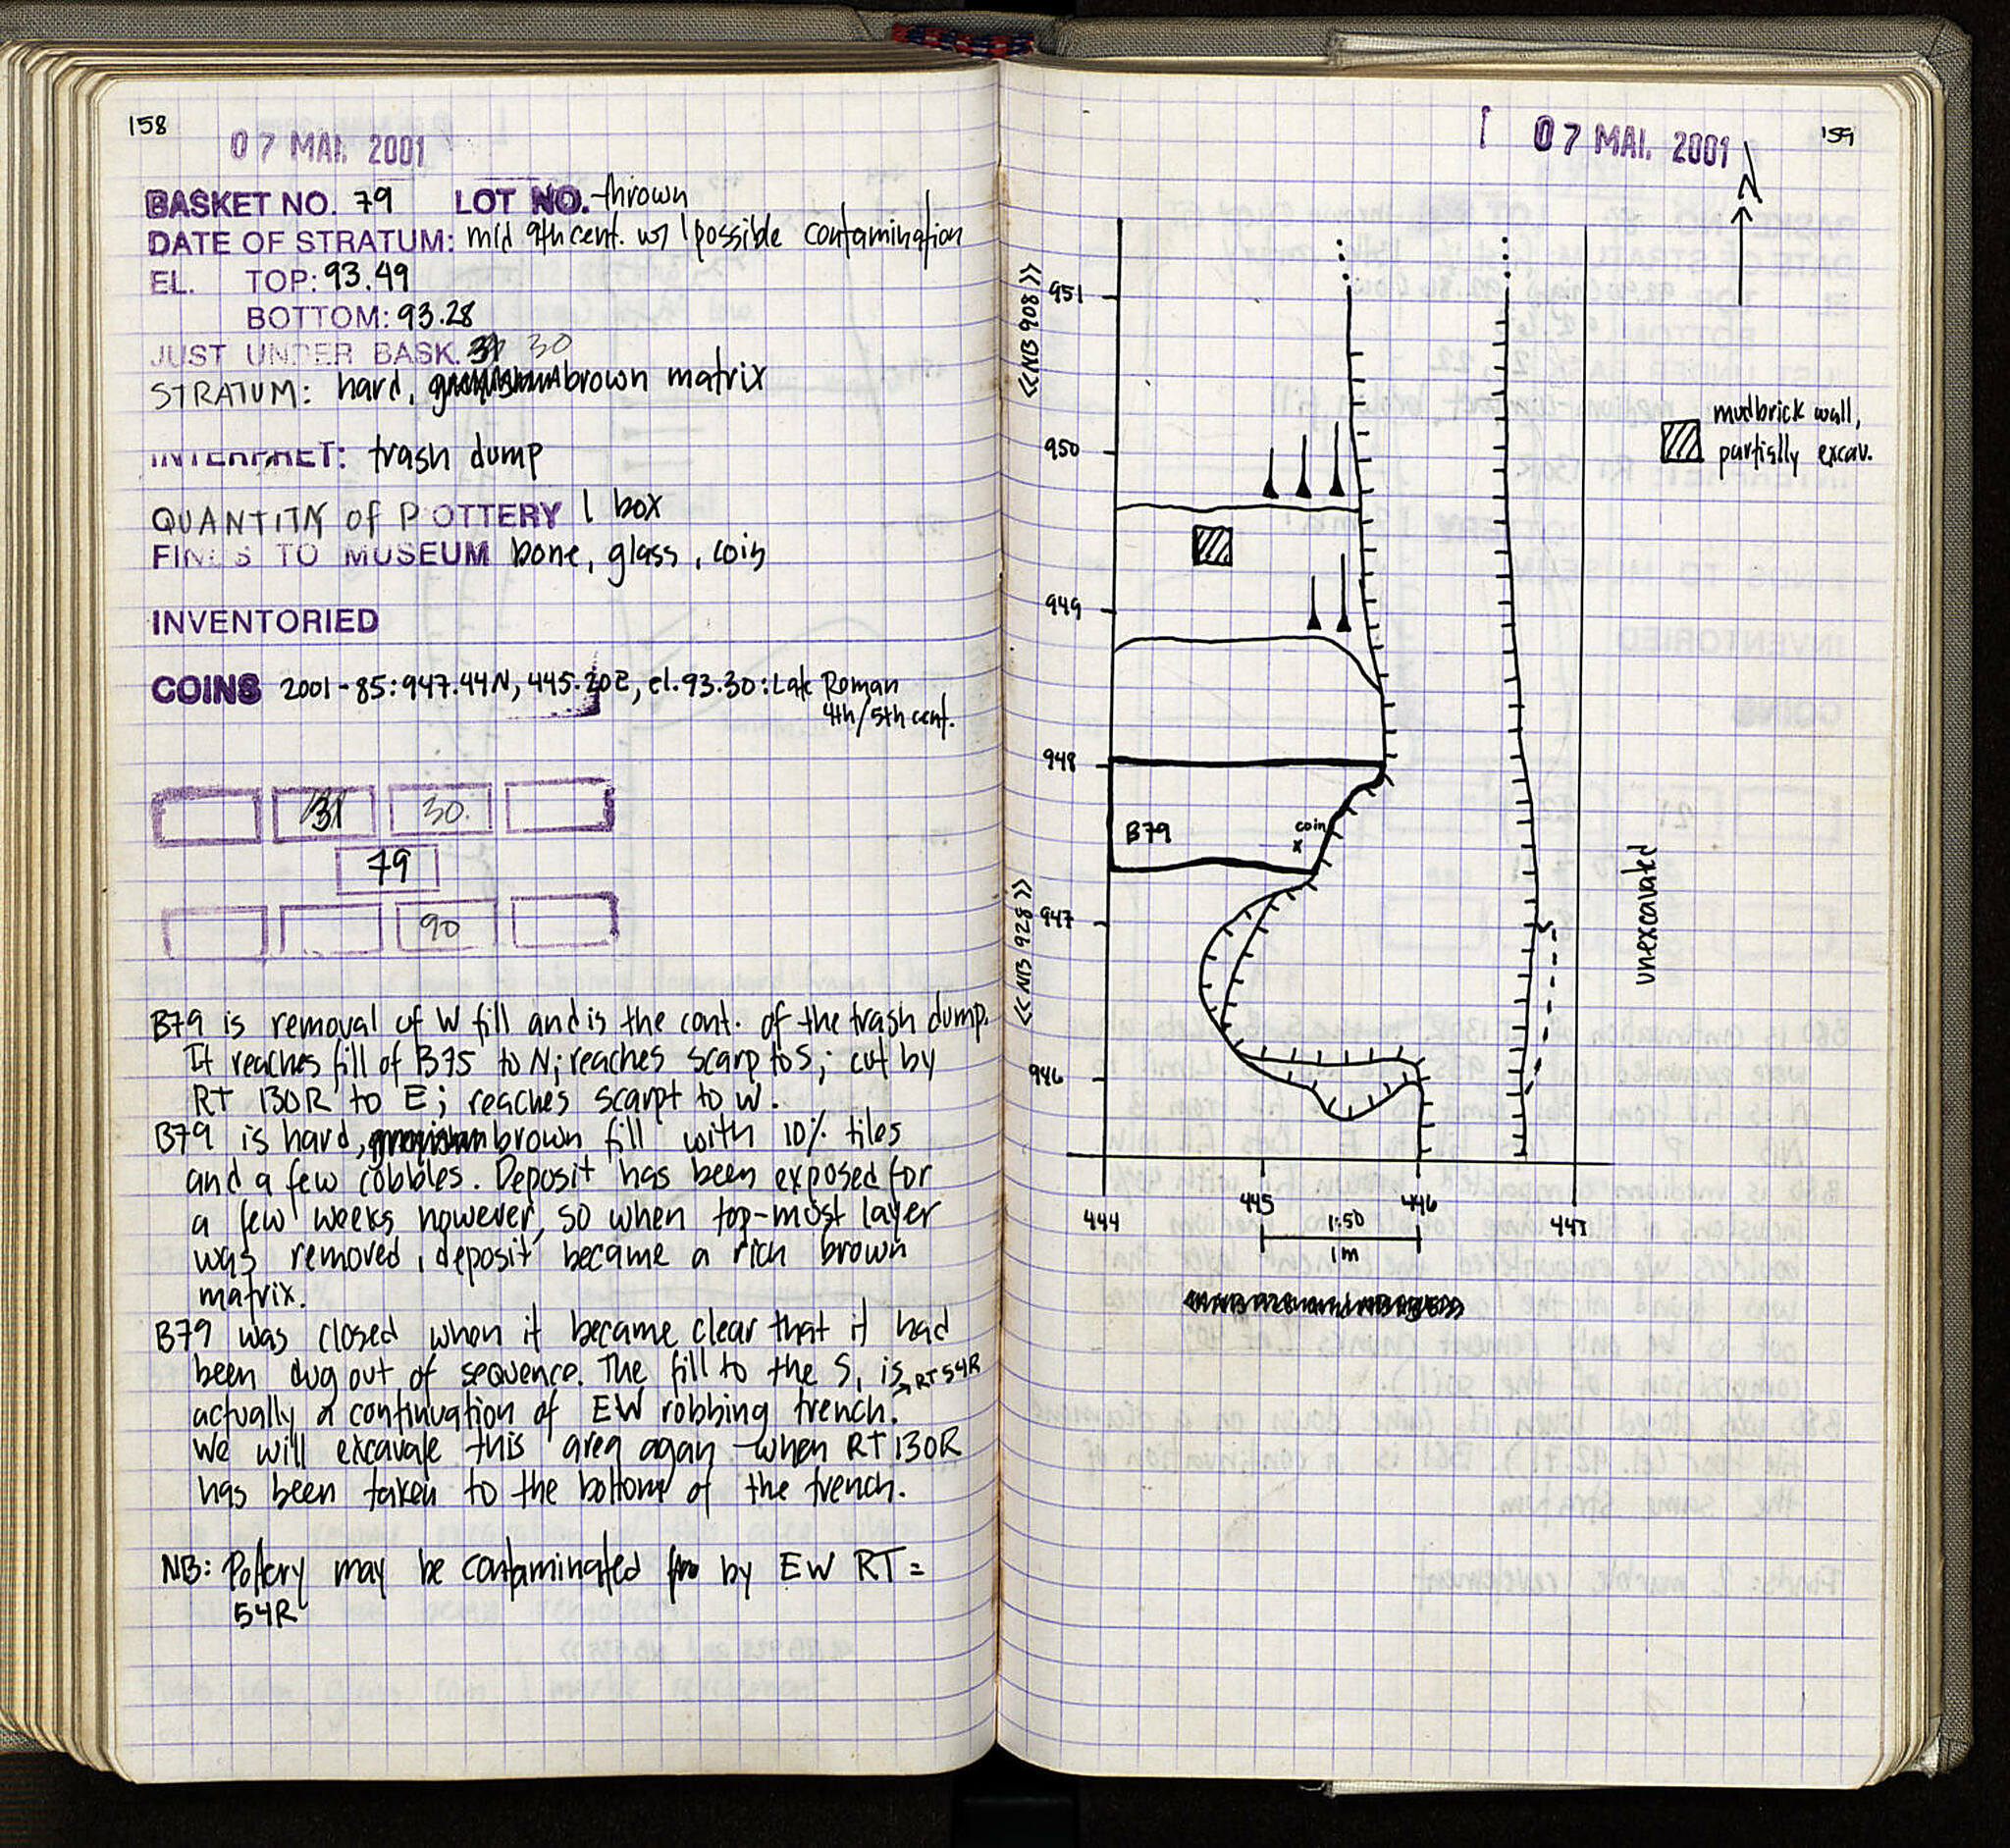 158
07 MAI. 2001
BASKET NO. 79 LOT NO. thrown
DATE OF STRATUM: mid 9th cent. w/ possible contamination
EL. TOP: 93.49
BOTTOM: 93.28
JUST UNDER BASK. 30
STRATUM: hard, brown matrix
INTERPRET: trash dump
QUANTITY of POTTERY 1 box
FINDS TO MUSEUM bone, glass, coin
INVENTORIED
COINS 2001-85: 947.44N, 445.20E, el. 93.30: Late Roman
4th/5th cent.
31 30.
79
90
B79 is removal of W fill and is the cont. of the trash dump.
It reaches fill of B75 to N; reaches scarp to S; cut by
RT 130R to E; reaches scarpt to W.
B79 is hard, brown fill with 10% tiles
and a few cobbles. Deposit has been exposed for
a few weeks however, so when top-most layer
was removed, deposit became a rich brown
matrix.
B79 was closed when it became clear that it had
been dug out of sequence. The fill to the S, is RT 54R
actually a continuation of EW robbing trench.
We will excavate this area again when RT 130R
has been taken to the bottom of the trench.
NB: Pottery may be contaminated by EW RT =
54R
07 MAI. 2001
159
N
<<NB 908>>
951
950
949
948
947
946
mudbrick wall,
partially excav.
B79
coin
x
<<NB 928>>
unexcavated
444
445
446
447
1:50
1m